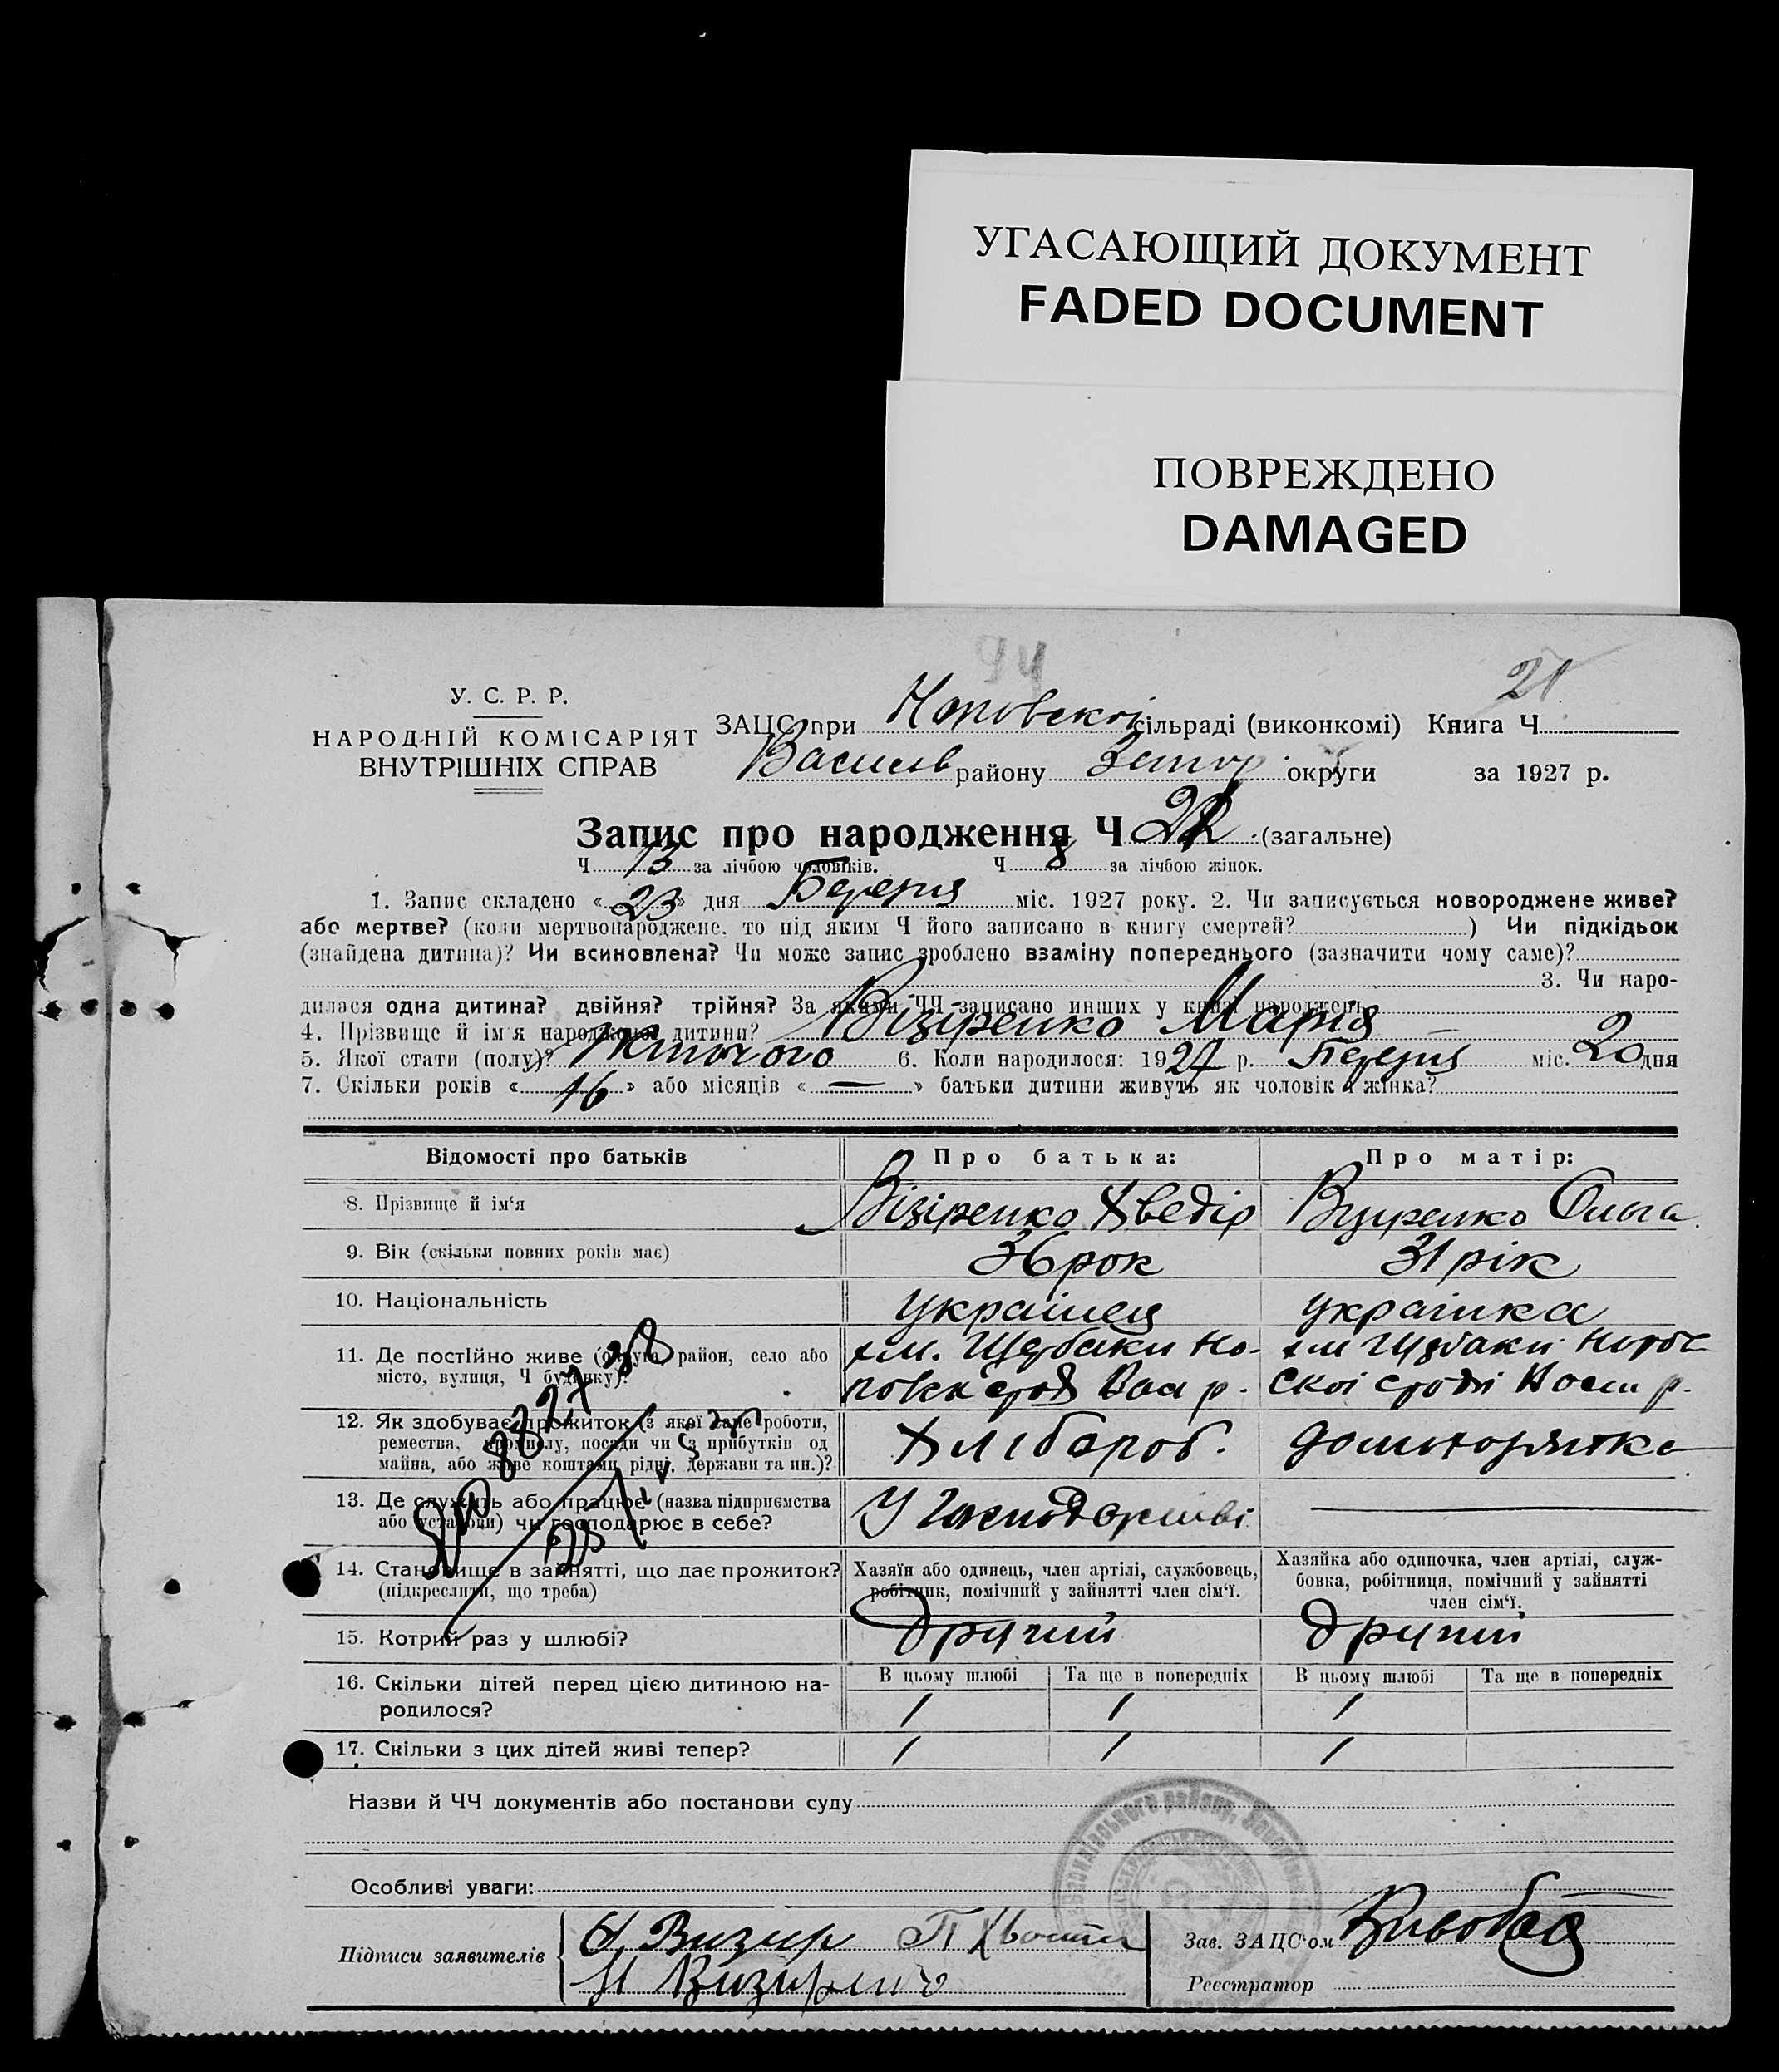 УГАСАЮЩИЙ ДОКУМЕНТ
FADED DOCUMENT
ПОВРЕЖДЕНО
DAMAGED
94
21
У. С. Р. Р.
НАРОДНІЙ КОМІСАРІЯТ
ВНУТРІШНІХ СПРАВ
ЗАЦС при сільраді (виконкомі) Книга Ч
Василів району Запор округи за 1927 р.
Запис про народження Ч 21 (загальне)
Ч 13 за лічбою чоловіків. Ч 8 за лічбою жінок.
1. Запис складено « 23 » дня Березня міс. 1927 року. 2. Чи записується новороджене живе?
або мертве? (коли мертвонароджене, то під яким Ч його записано в книгу смертей? ) Чи підкідьок
(знайдена дитина)? Чи всиновлена? Чи може запис зроблено взаміну попереднього (зазначити чому саме)?
3. Чи наро-
дилася одна дитина? двійня? трійня? За якими ЧЧ записано инших у книзі народжень
4. Прізвище й ім'я народженої дитини? Візіренко Марія
5. Якої стати (полу)? Жіночого 6. Коли народилося: 1927 р. Березня міс. 20 дня
7. Скільки років « 16 » або місяців « — » батьки дитини живуть як чоловік і жінка?
Відомості про батьків Про батька: Про матір:
8. Прізвище й ім'я Візіренко Хведір Візіренко Ольга
9. Вік (скільки повних років має) 36 рок 31 рік
10. Національність Українец українка
11. Де постійно живе (округа, район, село або
місто, вулиця, Ч будинку)?
хм. Щербаки
хм Щербаки
12. Як здобуває прожиток (з якої саме роботи,
ремества, промислу, посади чи з прибутків од
майна, або живе коштами рідні, держави та ин.)?
Хлібароб. домохазяйка
13. Де служить або працює (назва підприємства
або установи) чи господарює в себе?
У господарстві
14. Становище в зайнятті, що дає прожиток?
(підкреслити, що треба)
Хазяїн або одинець, член артілі, службовець,
робітник, помічний у зайнятті член сім'ї.
Хазяйка або одиночка, член артілі, служ-
бовка, робітниця, помічний у зайнятті
член сім'ї.
15. Котрий раз у шлюбі? другий другий
В цьому шлюбі Та ще в попередніх В цьому шлюбі Та ще в попередніх
16. Скільки дітей перед цією дитиною на-
родилося?
1 1 1
17. Скільки з цих дітей живі тепер? 1 1 1
Назви й ЧЧ документів або постанови суду
Особливі уваги:
Підписи заявителів
Зав. ЗАЦС'ом
Реєстратор